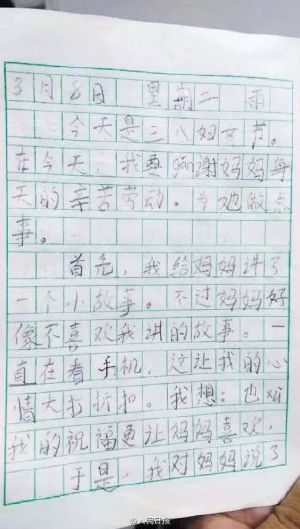 3月8日 星期二 雨
今天是三八妇女节。
在今天,我要感谢妈妈每
天的辛苦劳动。为她做点
事。
首先,我给妈妈讲了
一个小故事。不过妈妈好
像不喜欢我讲的故事。一
直在看手机,这让我的心
情大打折扣。我想:也许
我的祝福更让妈妈喜欢,
于是,我对妈妈说了
人民日报